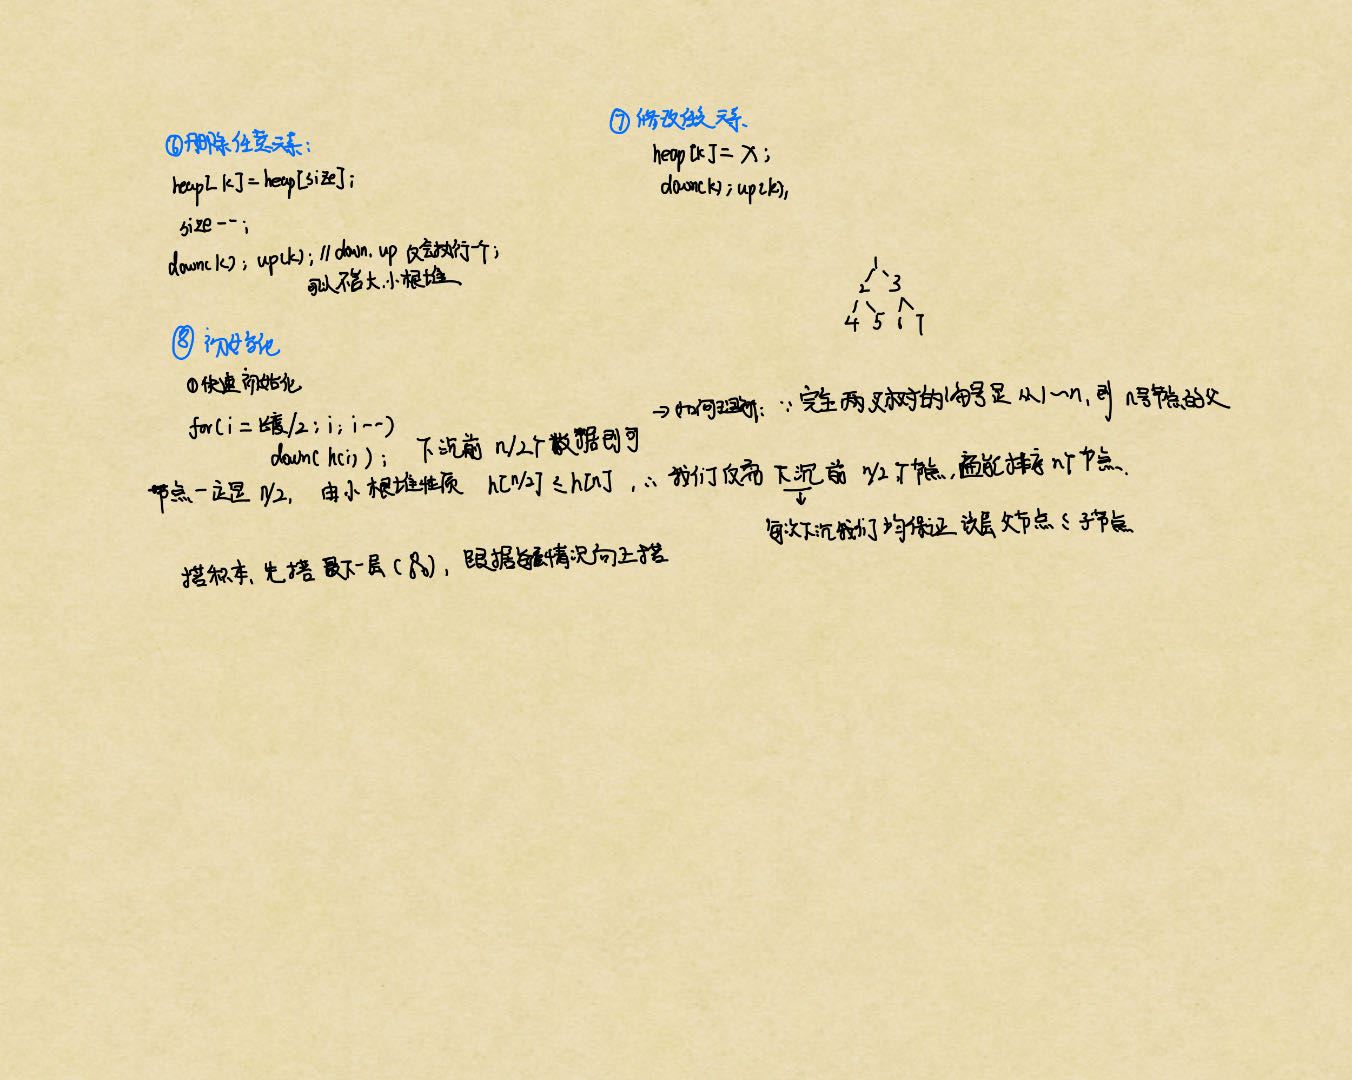 ⑥删除任意元素:
heap[k]=heap[size];
size--;
down(k); up(k); //down. up 仅会执行一个;
可以不管大.小根堆
⑦修改任意元素
heap[k]= x;
down(k); up(k),
1
2 3
4 5 6 7
⑧ 初始化
①快速初始化
for(i=长度/2; i; i--)
down(h(i)); 下沉前 n/2个数据即可
→如何理解: ∵完全两叉树的编号是从1~n, 则 n号节点的父
节点一定是 n/2, 由小根堆性质 h[n/2]≤h[n], ∴我们仅需下沉前 n/2个节点, 就能排序n个节点.
↓
每次下沉我们均保证该层父节点≤子节点
搭积木, 先搭最下一层( ), 跟据 情况向上搭